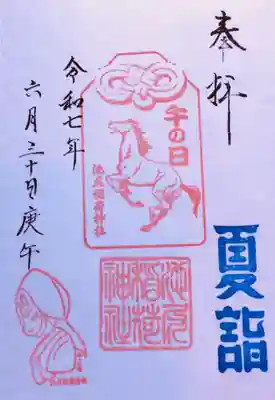 奉拝
夏詣
午の日
池尻稲荷神社
池尻
稲荷
神社
令和七年
六月三十日庚午